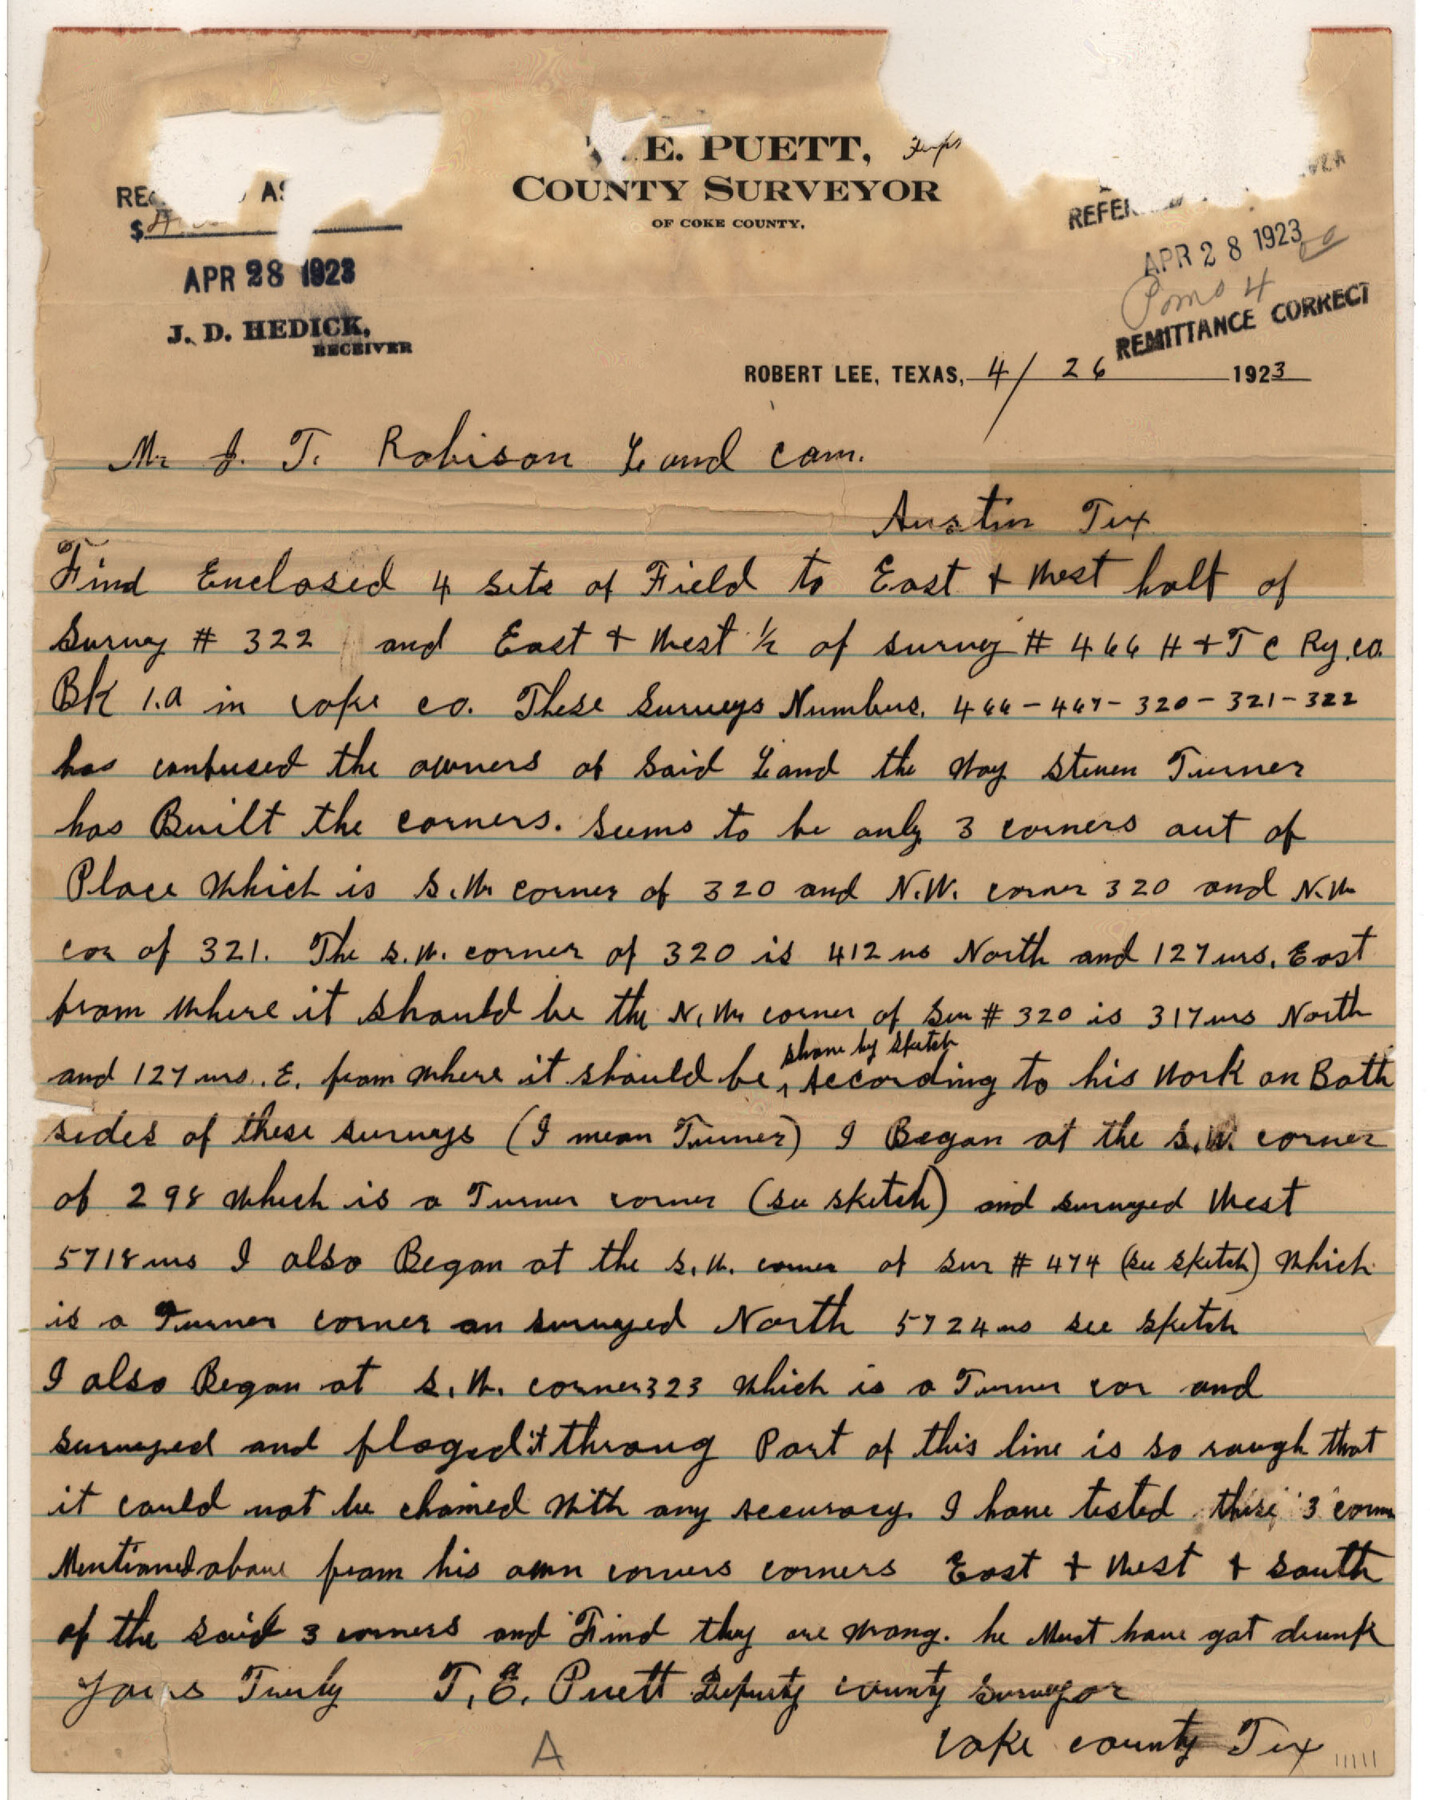 E. PUETT,
COUNTY SURVEYOR
OF COKE COUNTY.
AS
$
APR 28 1923
J. D. HEDICK,
RECEIVER
APR 28 1923
REMITTANCE CORRECT
ROBERT LEE, TEXAS, 4/26 1923
Mr J. T. Robison Land Com.
Austin Tex
Find Enclosed 4 sets of Field to East & West half of
Survey # 322 and East & West ½ of survey # 466 H & T C Ry. co.
BK 1.a in Coke co. These Surveys Numbers. 466 - 467 - 320 - 321 - 322
has confused the owners of Said Land the Way Steven Turner
has Built the corners. Seems to be only 3 corners out of
Place Which is S.W. corner of 320 and N.W. corner 320 and N.W.
cor of 321. The S.W. corner of 320 is 412 vrs North and 127 vrs. East
from Where it should be the N.W. corner of Sur # 320 is 317 vrs North
shown by sketch
and 127 vrs. E. from Where it should be, According to his Work on Both
sides of these surveys (I mean Turner) I Began at the S.W. corner
of 298 Which is a Turner corner (see sketch) and surveyed West
5718 vrs I also Began at the S.W. corner of Sur # 474 (see sketch) Which
is a Turner corner an surveyed North 5724 vrs see sketch
I also Began at S.W. corner 323 Which is a Turner cor and
surveyed and flaged it throug Part of this line is so rough that
it could not be chained With any accuracy. I have tested these 3 corners
Mentioned above from his own corners corners East & West & South
of the said 3 corners and Find they are Wrong. he Must have got drunk
Yours Truly T. E. Puett Deputy County Surveyor
Coke County Tex
A